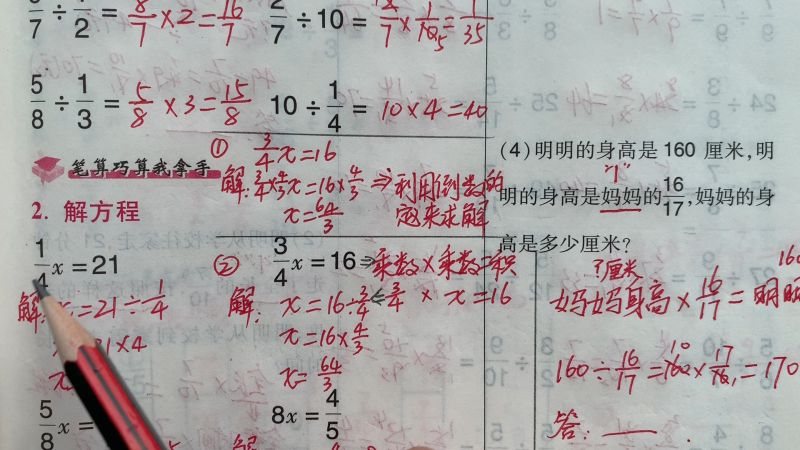 ÷ 1/2 = 8/7 × 2 = 16/7
2/7 ÷ 10 = 2/7 × 1/10 = 1/35
5/8 ÷ 1/3 = 5/8 × 3 = 15/8
10 ÷ 1/4 = 10 × 4 = 40
笔算巧算我拿手
2. 解方程
1/4 x = 21
解: x = 21 ÷ 1/4
× 4
5/8 x =
① 3/4 x = 16
解: 3/4 × 4/3 x = 16 × 4/3 ⇒ 利用倒数的
x = 64/3
来求解
② 3/4 x = 16 ⇒ 乘数 × 乘数 = 积
解: x = 16 ÷ 3/4 ← 3/4 × x = 16
x = 16 × 4/3
x = 64/3
8x = 4/5
解
(4) 明明的身高是 160 厘米,明
"1"
明的身高是妈妈的 16/17,妈妈的身
高是多少厘米?
?厘米
160
妈妈身高 × 16/17 = 明明
160 ÷ 16/17 = 160 × 17/16 = 170
答: ——.